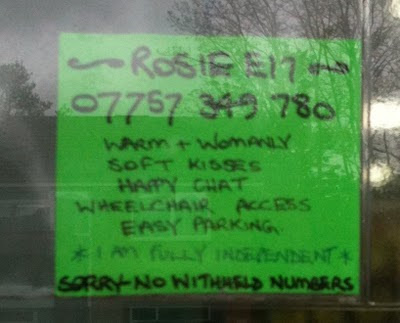 ~ ROSIE E17 ~
07757 349 780
WARM + WOMANLY
SOFT KISSES
HAPPY CHAT
WHEELCHAIR ACCESS
EASY PARKING.
* I AM FULLY INDEPENDENT *
SORRY-NO WITHHELD NUMBERS